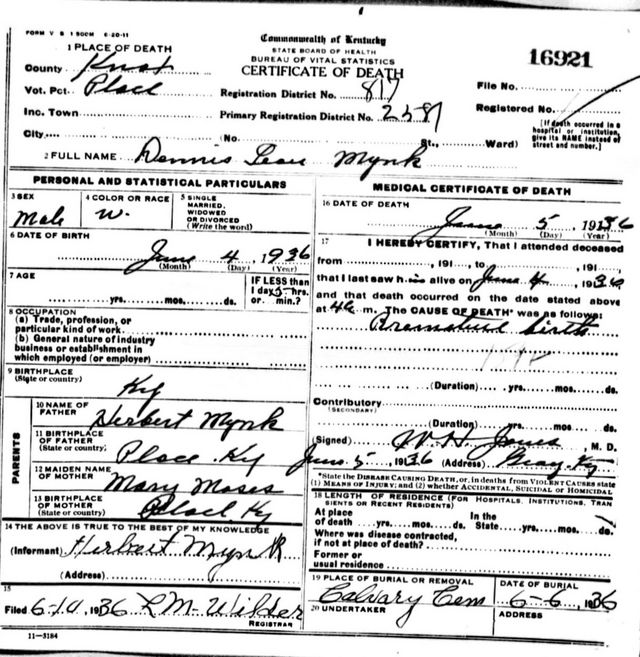 FORM V S 1 50CM 6-20-11
Commonwealth of Kentucky
STATE BOARD OF HEALTH
BUREAU OF VITAL STATISTICS
CERTIFICATE OF DEATH
16921
1 PLACE OF DEATH
County Knox
Vot. Pct. Place
Registration District No. 817
File No.
Inc. Town
Primary Registration District No. 2587
Registered No.
City (No. St., Ward)
[If death occurred in a hospital or institution, give its NAME instead of street and number.]
2 FULL NAME Dennis Leon Mynk
PERSONAL AND STATISTICAL PARTICULARS
3 SEX Male
4 COLOR OR RACE W.
5 SINGLE MARRIED, WIDOWED OR DIVORCED (Write the word)
6 DATE OF BIRTH
June 4, 1936
(Month) (Day) (Year)
7 AGE
yrs. mos. ds.
IF LESS than 1 day 5 hrs. or min.?
8 OCCUPATION
(a) Trade, profession, or particular kind of work
(b) General nature of industry business or establishment in which employed (or employer)
9 BIRTHPLACE
(State or country)
Ky
PARENTS
10 NAME OF FATHER Herbert Mynk
11 BIRTHPLACE OF FATHER (State or country) Place Ky
12 MAIDEN NAME OF MOTHER Mary Moses
13 BIRTHPLACE OF MOTHER (State or country) Place Ky
14 THE ABOVE IS TRUE TO THE BEST OF MY KNOWLEDGE
(Informant) Herbert Mynk
(Address)
15
Filed 6-10, 1936 L M Wilder
REGISTRAR
11-3184
MEDICAL CERTIFICATE OF DEATH
16 DATE OF DEATH
June 5 1936
(Month) (Day) (Year)
17 I HEREBY CERTIFY, That I attended deceased
from , 191 , to , 191 ,
that I last saw him alive on June 4, 1936
and that death occurred on the date stated above
at 4a m. The CAUSE OF DEATH* was as follows:
Premature birth
(Duration) yrs. mos. ds.
Contributory
(SECONDARY)
(Duration) yrs. mos. ds.
(Signed) W H Jones M. D.
June 5, 1936 (Address) Gray Ky
*State the DISEASE CAUSING DEATH, or, in deaths from VIOLENT CAUSES state
(1) MEANS OF INJURY; and (2) whether ACCIDENTAL, SUICIDAL OR HOMICIDAL
18 LENGTH OF RESIDENCE (FOR HOSPITALS, INSTITUTIONS, TRANSIENTS OR RECENT RESIDENTS)
At place of death yrs. mos. ds. In the State yrs. mos. ds.
Where was disease contracted, if not at place of death?
Former or usual residence
19 PLACE OF BURIAL OR REMOVAL Calvary Cem
DATE OF BURIAL 6-6, 1936
20 UNDERTAKER
ADDRESS